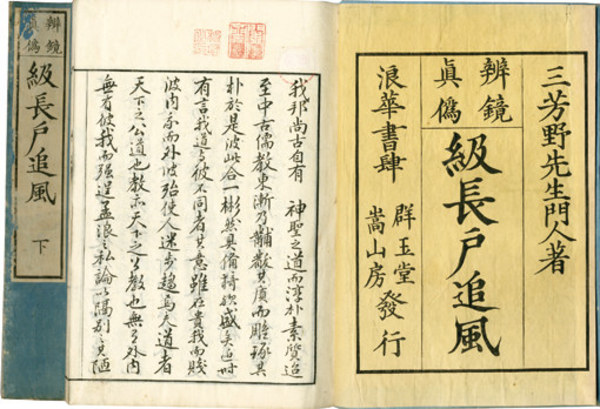 三芳野先生門人著
辨鏡
眞僞
級長戸追風
浪華書肆
群玉堂
嵩山房發行
我邦尚古自有　神聖之道而淳朴素質迨
至中古儒教東漸乃黼黻其質而雕琢其
朴於是彼此合一彬然具備猗欤盛矣近时
有言我道与彼不同者其意雖在貴我而賤
彼内而外彼殆使人迷步趨焉夫道者
天下之公道也教亦天下之公教也無有外内
無有彼我而强逞孟浪之私論以隔別之其陋
辨鏡
眞僞
級長戸追風
下